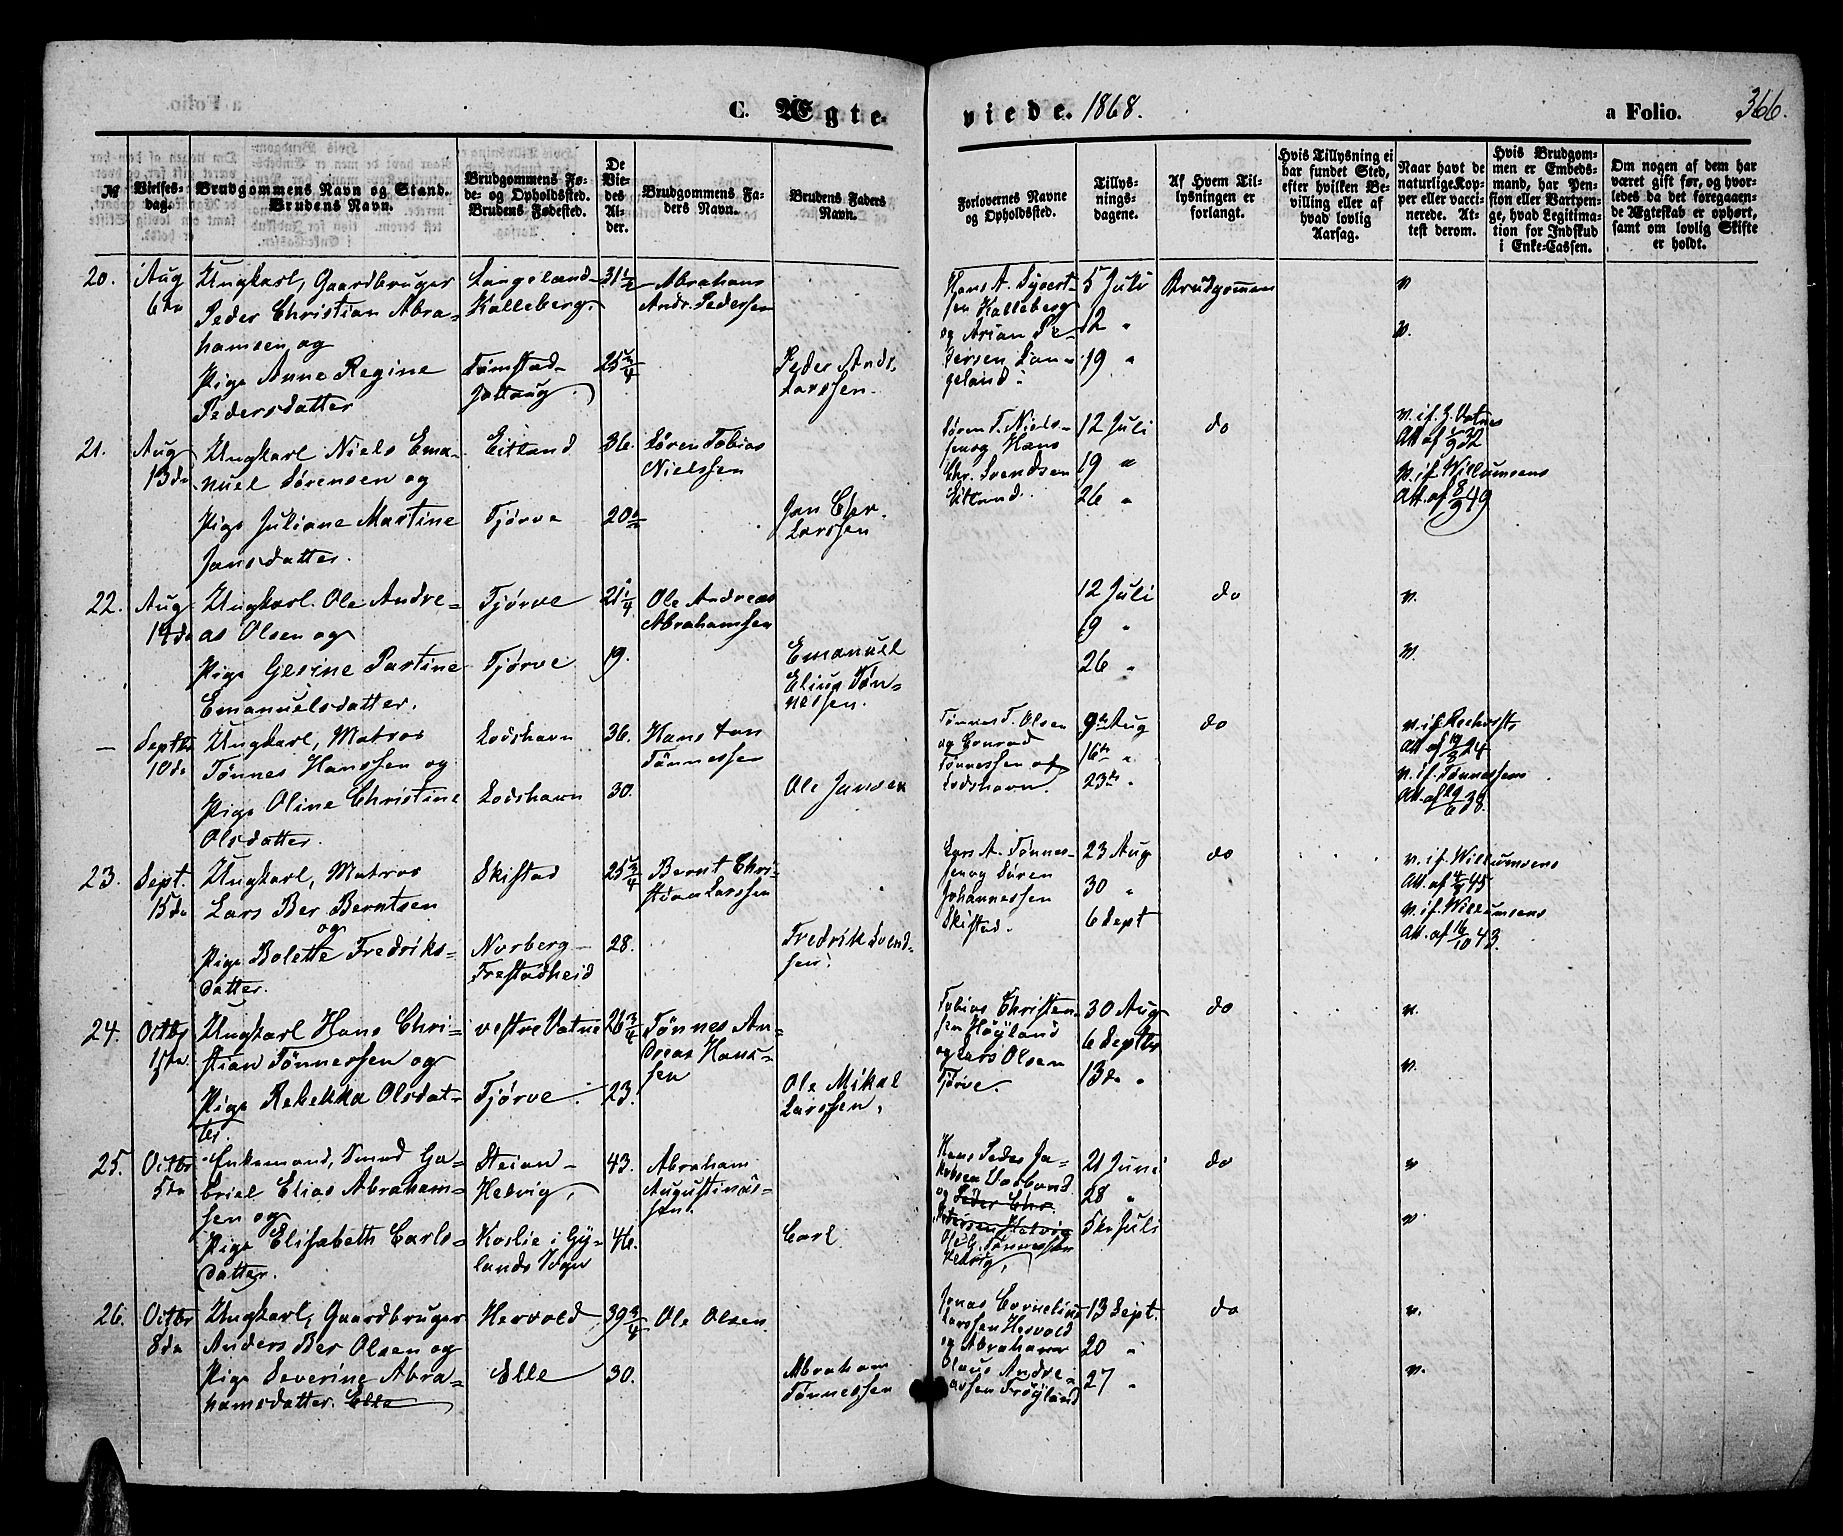 C. Ægte-
viede. 1868.
a Folio.
366.
№
Vielses-
dag.
Brudgommens Navn og Stand.
Brudens Navn.
Brudgommens Fø-
de- og Opholdssted.
Brudens Fødested.
De
Vie-
des
Al-
der.
Brudgommens Fa-
ders Navn.
Brudens Faders
Navn.
Forlovernes Navne
og Opholdssted.
Tillys-
nings-
dagene.
Af Hvem Til-
lysningen er
forlangt.
Hvis Tillysning ei
har fundet Sted,
efter hvilken Be-
villing eller af
hvad lovlig
Aarsag.
Naar havt de
naturlige Kop-
per eller vacci-
nerede. At-
test derom.
Hvis Brudgom-
men er Embeds-
mand, har Pen-
sion eller Vartpen-
ge, hvad Legitima-
tion for Indskud
i Enke-Cassen.
Om nogen af dem har
været gift før, og hvor-
ledes da det foregaaen-
de Ægteskab er ophørt,
samt om lovlig Skifte
er holdt.
20.
Aug
6te
Ungkarl, Gaardbruger
Peder Christian Abra-
hamsen og
Pige Anne Regine
Pedersdatter
Langeland-
Kalleberg.
Tømstad-
Jøllaug.
31 1/2
25 3/4
Abraham
Andr. Pedersen
Peder Andr.
Larssen.
Hans A. Syvert-
sen Kalleberg
og Arian Pe-
dersen Lan-
geland.
5 Juli
12 "
19 "
Brudgommen
v
v.
21.
Aug
13de
Ungkarl Niels Ema-
nuel Sørensen og
Pige Juliane Martine
Jansdatter.
Eitland
Tjørve
36.
20 1/2
Søren Tobias
Nielssen
Jan Chr.
Larssen
Søren T. Niels-
sen og Hans
Chr. Svendsen
Eitland.
12 Juli
19 "
26 "
do
v. if. Z. Vatnes
Att. af 5/9 32
v. if. Willumsens
Att. af 8/9 49
22.
Aug
14de
Ungkarl. Ole Andre-
as Olsen og
Pige Gesine Partine
Emanuelsdatter.
Tjørve
Tjørve.
21 1/4
19.
Ole Andreas
Abrahamsen
Emanuel
Elius Tøn-
nessen.
12 Juli
19 "
26 "
do
v.
v.
–
Septbr
10de
Ungkarl, Matros
Tønnes Hanssen og
Pige Oline Christine
Olsdatter.
Lodshavn
Lodshavn
36.
30.
Hans Jan
Tønnessen
Ole Jansen
Tønnes T. Olsen
og Conrad
Tønnessen af
Lodshavn.
9de Aug
16de "
23de "
do
v. if. Reehorsts
Att. af 19/8 24
v. if. Tønnessens
Att. af 29/6 38.
23.
Sept.
15de
Ungkarl, Matros
Lars Ber Berntsen
og
Pige Bolette Fredriks-
datter.
Skistad
Norberg-
Frestadheid
25 3/4
28.
Bernt Chri-
stian Larssen
Fredrik Svend-
sen.
Lars A. Tønnes-
sen og Søren
Johannessen
Skistad.
23 Aug
30 "
6 Sept
do
v. if. Willumsens
Att. af 4/9 45
v. if. Willumsens
Att. af 16/10 43.
24.
Octbr
1ste
Ungkarl Hans Chri-
stian Tønnessen og
Pige Rebekka Olsdat-
ter.
vestre Vatne
Tjørve.
26 3/4
23.
Tønnes An-
dreas Hans-
sen
Ole Mikal
Larssen.
Tobias Christen-
sen Høyland
og Lars Olsen
Tjørve.
30 Aug
6 Septbr
13de "
do
v.
v.
25.
Octbr
5te
Enkemand, Smed Ga-
briel Elias Abraham-
sen og
Pige Elisabeth Carls-
datter.
Steian-
Helvig,
Koslie i Gy-
lands Sogn
43.
46.
Abraham
Augustinus-
sen.
Carl.
Hans Peder Ja-
kobsen
og Peder Chr.
Pedersen Helvig
Ole G. Tønnessen
Helvig,
21 Juni
28 "
5te Juli
do
v
v
26.
Octbr
8de
Ungkarl, Gaardbruger
Anders Ber Olsen og
Pige Severine Abra-
hamsdatter. Elle
Hervold
Elle
39 3/4
30.
Ole Olsen
Abraham
Tønnessen
Jonas Cornelius
Larssen Hervold
og Abraham
Olaus Andre-
assen Frøyland
13 Sept.
20 "
27 "
do
v.
v.